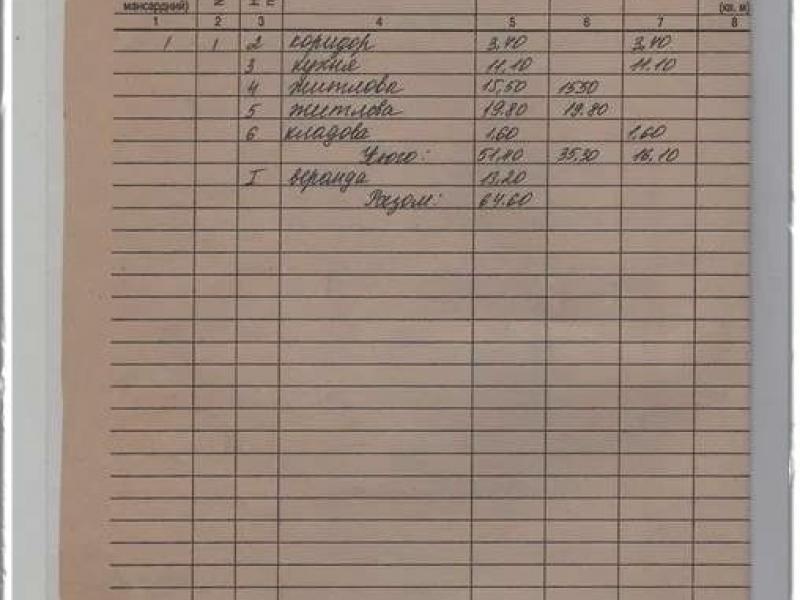 мансардний) (кв. м)
1 2 3 4 5 6 7 8
1 1 2 коридор 3,40 3,40
3 кухня 11.10 11.10
4 житлова 15,50 15.50
5 житлова 19.80 19.80
6 кладова 1,60 1,60
Усього: 51,40 35,30 16,10
I веранда 13,20
Разом: 64.60